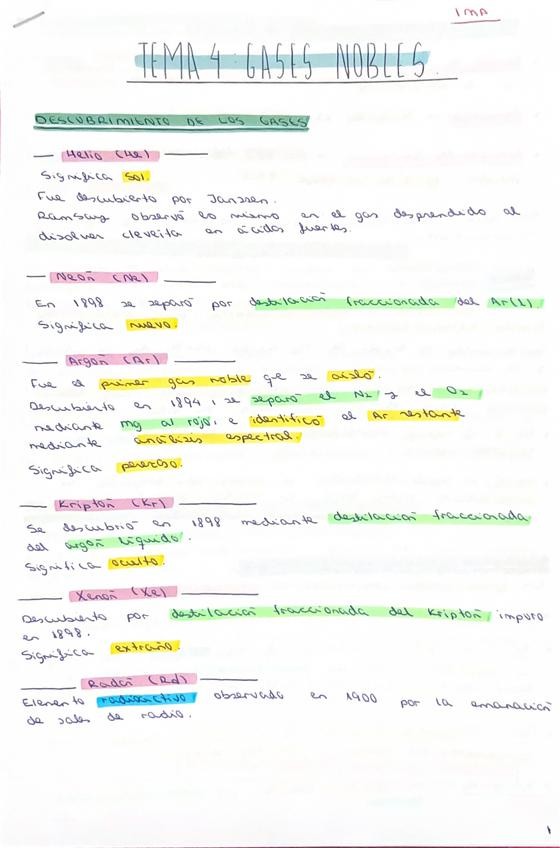 IMA
TEMA 4: GASES NOBLES.
DESCUBRIMIENTO DE LOS GASES
Helio (He)
Significa sol.
Fue descubierto por Janssen.
Ramsay observó lo mismo en el gas desprendido al
disolver cleveita en ácidos fuertes.
Neón (Ne)
En 1898 se separó por destilación fraccionada del Ar(l).
Significa nuevo.
Argón (Ar)
Fue el primer gas noble que se aisló.
Descubierto en 1894, se separó el N2 y el O2
mediante Mg al rojo, e identificó el Ar restante
mediante análisis espectral.
Significa perezoso.
Kriptón (Kr)
Se descubrió en 1898 mediante destilación fraccionada
del argón líquido.
Significa oculto.
Xenón (Xe)
Descubierto por destilación fraccionada del Kriptón impuro
en 1898.
Significa extraño.
Radón (Rd)
Elemento radioactivo observado en 1900 por la emanación
de sales de radio.
1